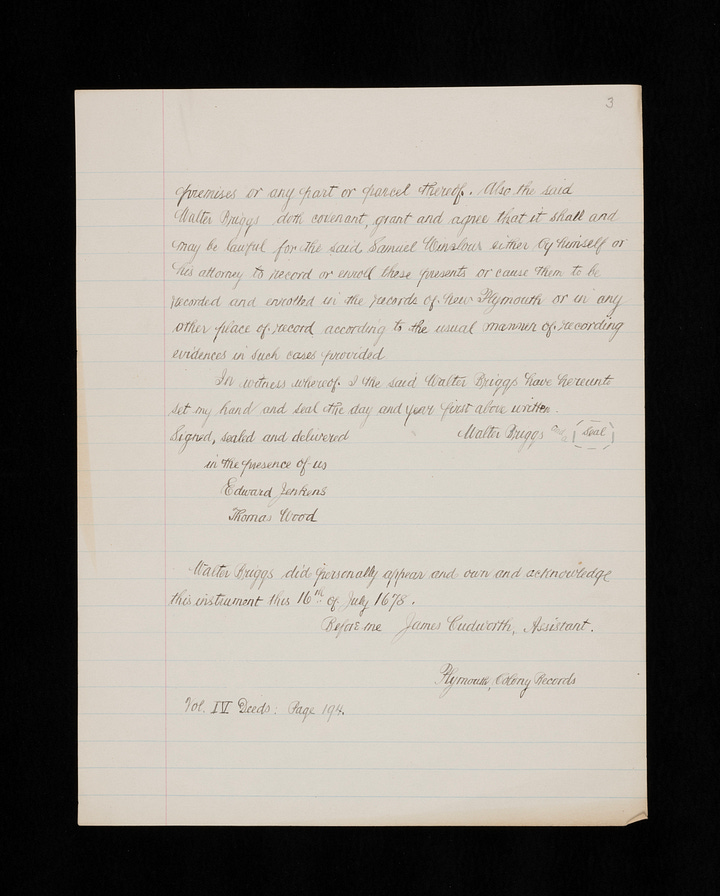 3
premises or any part or parcel thereof. Also the said
Walter Briggs doth covenant, grant and agree that it shall and
may be lawful for the said Samuel Winslow either by himself or
his attorney to record or enroll these presents or cause them to be
recorded and enrolled in the records of New Plymouth or in any
other place of record according to the usual manner of recording
evidences in such cases provided
In witness whereof I the said Walter Briggs have hereunto
set my hand and seal the day and year first above written.
Signed, sealed and delivered Walter Briggs and a (Seal)
in the presence of us
Edward Jenkens
Thomas Wood
Walter Briggs did personally appear and own and acknowledge
this instrument this 16th of July 1678.
Before me James Cudworth, Assistant.
Plymouth, Colony Records
Vol. IV Deeds: Page 194.